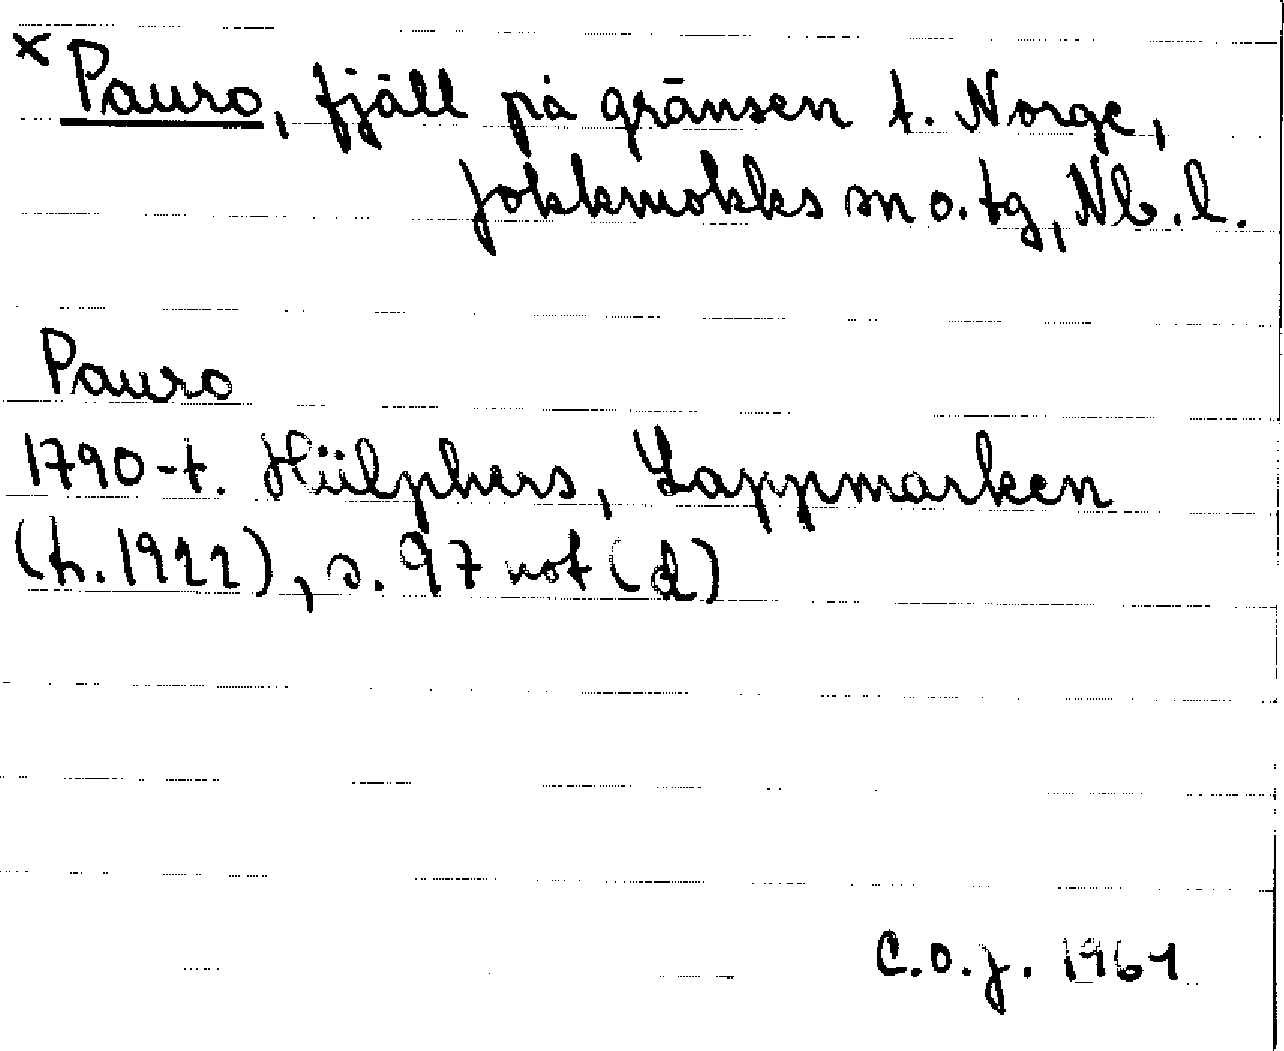 x Pauro, fjäll på gränsen t. Norge,
Jokkmokks sn o. tg, Nb. l.
Pauro
1790-t. Hülphers, Lappmarken
(tr. 1922), s. 97 not (d)
C.O.J. 1961